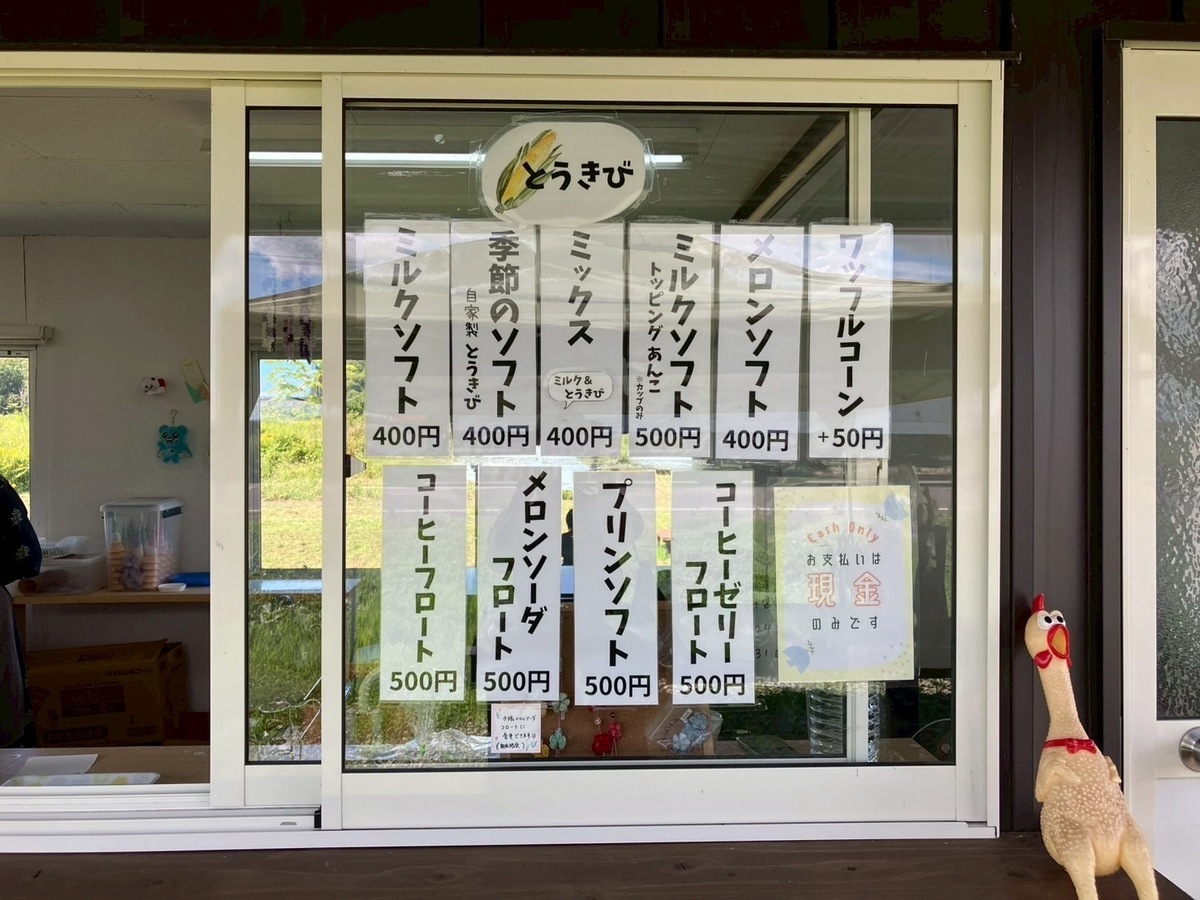 とうきび
ミルクソフト
400円
季節のソフト
自家製 とうきび
400円
ミックス
ミルク&
とうきび
400円
ミルクソフト
トッピング あんこ
※カップのみ
500円
メロンソフト
400円
ワッフルコーン
+50円
コーヒーフロート
500円
メロンソーダ
フロート
500円
プリンソフト
500円
コーヒーゼリー
フロート
500円
Cash Only
お支払いは
現金
のみです